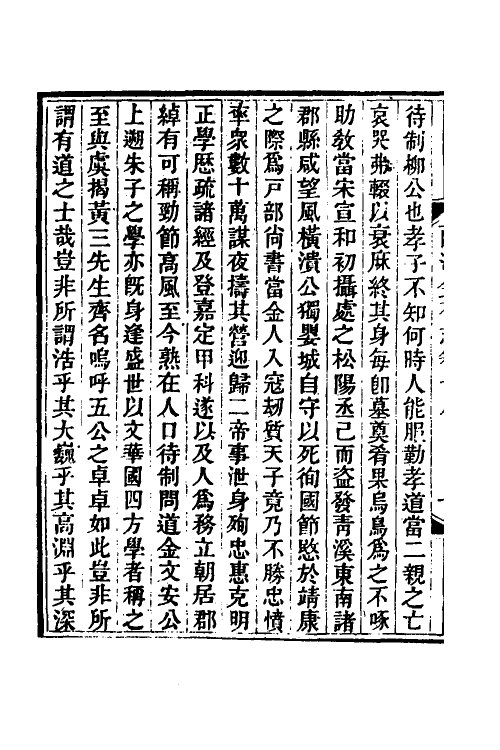 待制柳公也孝子不知何時人能服勤孝道當二親之亡
哀哭弗輟以衰麻終其身每卽墓奠肴果烏鳥爲之不啄
助教當宋宣和初攝處之松陽丞己而盜發青溪東南諸
郡縣咸望風橫潰公獨嬰城自守以死徇國節愍於靖康
之際爲戸部尚書當金人入寇刼質天子竟乃不勝忠憤
率衆數十萬謀夜擣其營迎歸二帝事泄身殉忠惠克明
正學歷疏諸經及登嘉定甲科遂以及人爲務立朝居郡
綽有可稱勁節高風至今熟在人口待制問道金文安公
上遡朱子之學亦旣身逢盛世以文華國四方學者稱之
至與虞揭黃三先生齊名嗚呼五公之卓卓如此豈非所
謂有道之士哉豈非所謂浩乎其大巍乎其高淵乎其深